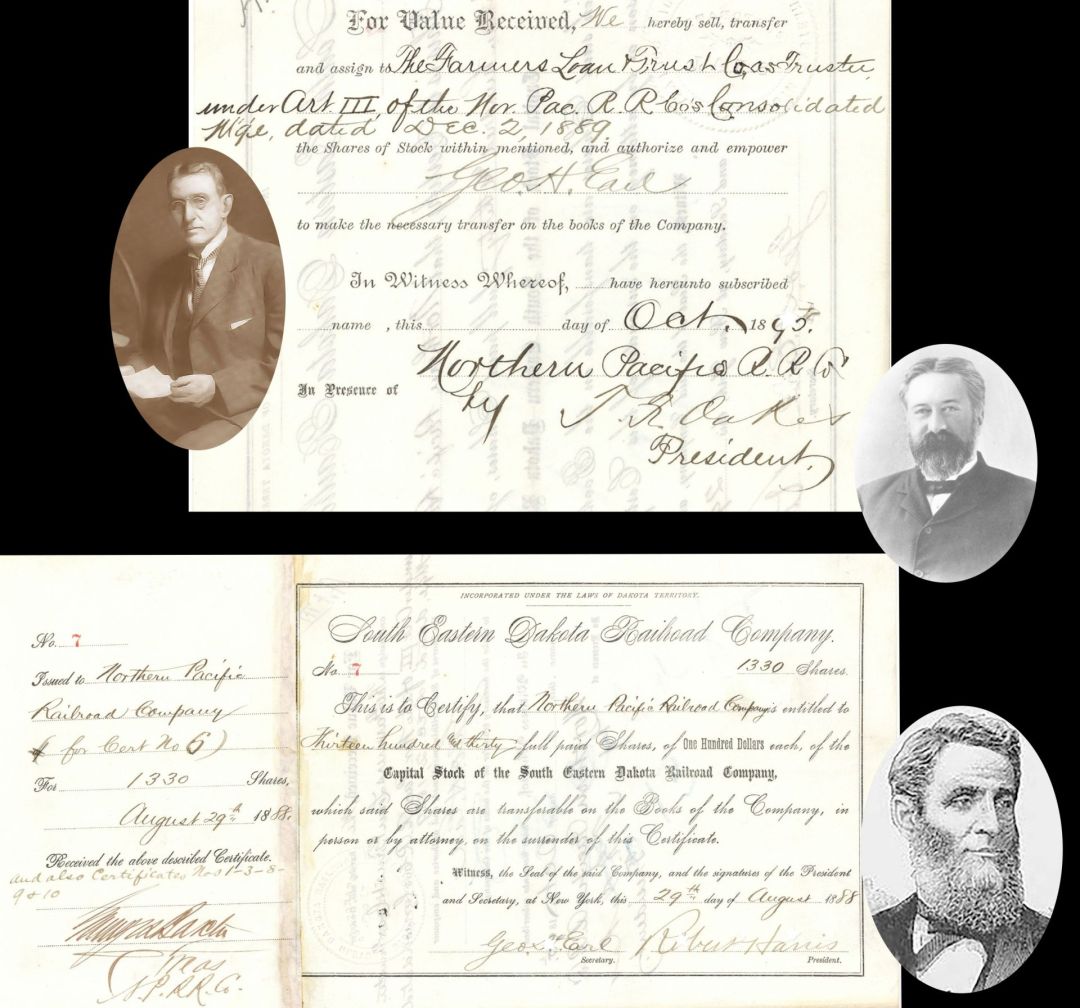 For Value Received, We hereby sell, transfer
and assign to The Farmers Loan & Trust Co, as Trustee,
under Art III, of the Nor. Pac. R. R Co's Consolidated
M'g'e, dated Dec. 2, 1889,
the Shares of Stock within mentioned, and authorize and empower
Geo. H. Earl
to make the necessary transfer on the books of the Company.
In Witness Whereof, have hereunto subscribed
name , this day of Oct. 1895.
Northern Pacific R. R Co
In Presence of
by T. F. Oakes
President.
INCORPORATED UNDER THE LAWS OF DAKOTA TERRITORY.
South Eastern Dakota Railroad Company.
No. 7 1330 Shares.
This is to Certify, that Northern Pacific Railroad Company is entitled to
Thirteen hundred and thirty full paid Shares, of One Hundred Dollars each, of the
Capital Stock of the South Eastern Dakota Railroad Company,
which said Shares are transferable on the Books of the Company, in
person or by attorney, on the surrender of this Certificate.
Witness, the Seal of the said Company, and the signatures of the President
and Secretary, at New York, this 29th day of August 1888
Geo. H. Earl Robert Harris
Secretary. President.
No. 7
Issued to Northern Pacific
Railroad Company
( for Cert No 6)
For 1330 Shares,
August 29th 1888.
Received the above described Certificate.
and also Certificates Nos 1-3-8-
9 & 10
Treas
N.P.R.R.Co.